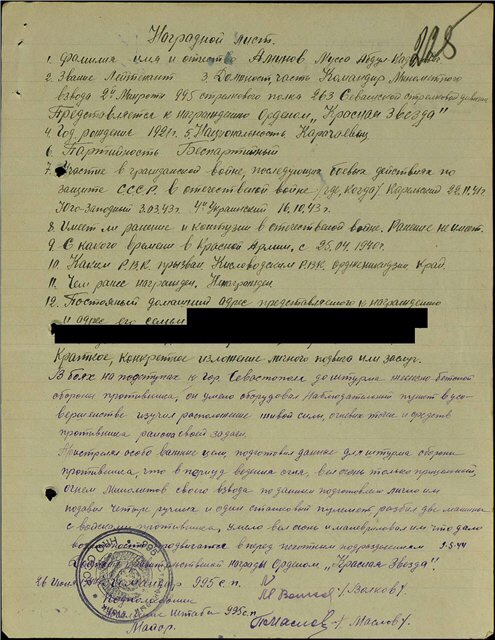 Наградной лист.
208
1. Фамилия имя и отчество Аликов Мусса Абдул-Кар
2. Звание Лейтенант 3. Должность часть Командир Минометного
взвода 2й Минроты 995 стрелкового полка 263 Севашской стрелковой дивиз
Представляется к награждению Орденом „Красная Звезда"
4 Год рождение 1921г. 5 Национальность Карачаевец
6 Партийность Беспартийный
7. Участие в гражданской войне, последующих боевых действиях по
защите СССР в отечественной войне (где, когда) Карельский 22.11.41г
Юго-Западный 3.03.43г. 4й Украинский 16.10.43г.
8 Имеет ли ранение и контузии в отечественой войне. Ранение не имеет.
9. С какого времени в Красной Армии. с 25.04.1940г.
10. Каким Р.В.К. призван. Кисловодским РВК. Орджоникидзи Край
11. Чем ранее награжден. Ненагражден.
12. Постояный домашний адрес представляемого к награждению
и адрес его семьи
Краткое, конкретное изложение личного подвига или заслуг.
В боях на подступах к гор. Севастополь до штурма железно бетоной
обороны противника, он умело оборудовал Наблюдательный пункт в усо-
вершенстве изучил расположение живой силы, огневых точек и средств
противника раиона своей задачи.
особо важные цели, подготовил данные для штурма обороны
противника, что в период ведения огня, вел огонь только прицельный,
огнем Минометов своего взвода по данным подготовленым лично им
подавил четыре ручных и один станковый пулемет, разбил две машины
с войсками противника, умело вел огонь и маневрировал им что дало
возможность продвигатся вперед пехотным подразделениям 7-5-44
правительственной награды Орденом „Красная Звезда"
Командир 995 с.п.
Подполковник /Волков/.
Начальник Штаба 995 с.п.
Майор. /Маслов/.